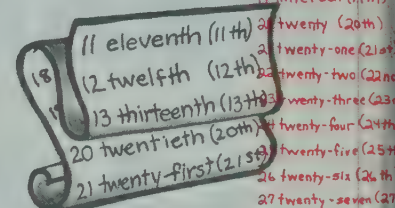 11 eleventh (11th)
12 twelfth (12th)
13 thirteenth (13th)
20 twentieth (20th)
21 twenty-first (21st)
18
twenty (20th)
twenty-one (21st
twenty-two (22nd
twenty-three (23
twenty-four (24th
twenty-five (25th
26 twenty-six (26th
27 twenty-seven (27